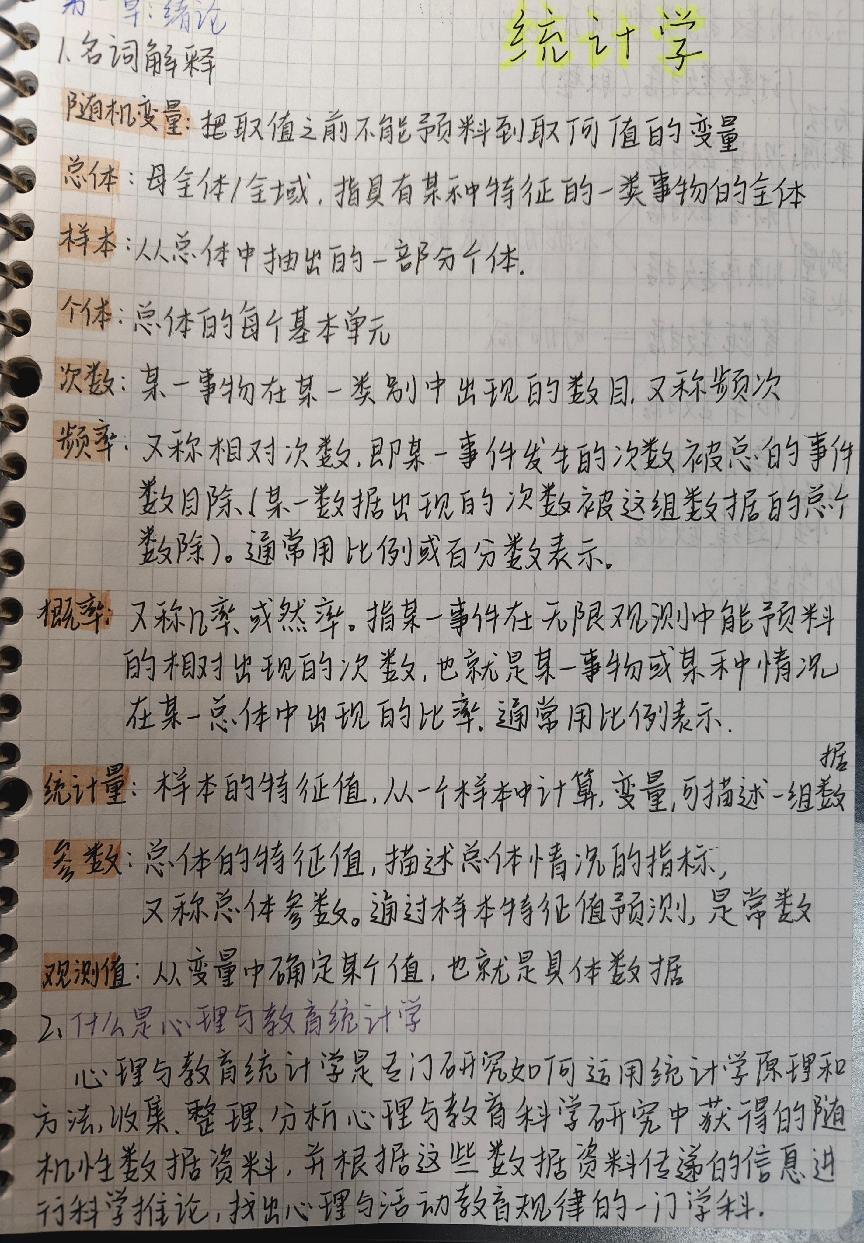 第一章:绪论
统计学
1.名词解释
随机变量:把取值之前不能预料到取何值的变量
总体:母全体/全域,指具有某种特征的一类事物的全体
样本:从总体中抽出的一部分个体.
个体:总体的每个基本单元
次数:某一事物在某一类别中出现的数目,又称频次
频率:又称相对次数,即某一事件发生的次数被总的事件
数目除、(某一数据出现的次数被这组数据的总个
数除)。通常用比例或百分数表示。
概率:又称几率、或然率。指某一事件在无限观测中能预料
的相对出现的次数,也就是某一事物或某种情况
在某一总体中出现的比率.通常用比例表示.
统计量:样本的特征值,从一个样本中计算,变量,可描述一组数据
参数:总体的特征值,描述总体情况的指标,
又称总体参数。通过样本特征值预测,是常数
观测值:从变量中确定某个值,也就是具体数据
2、什么是心理与教育统计学
心理与教育统计学是专门研究如何运用统计学原理和
方法,收集、整理、分析心理与教育科学研究中获得的随
机性数据资料,并根据这些数据资料传递的信息进
行科学推论,找出心理与活动教育规律的一门学科.